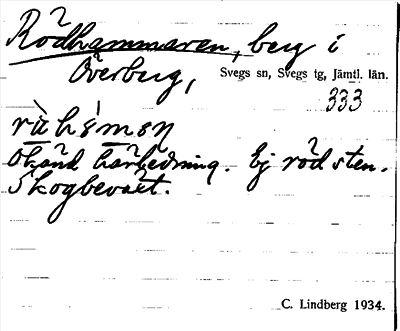 Rödhammaren, berg i
Överberg, Svegs sn, Svegs tg, Jämtl. län.
333
Okänd härledning. Ej röd sten.
Skogbeväxt.
C. Lindberg 1934.